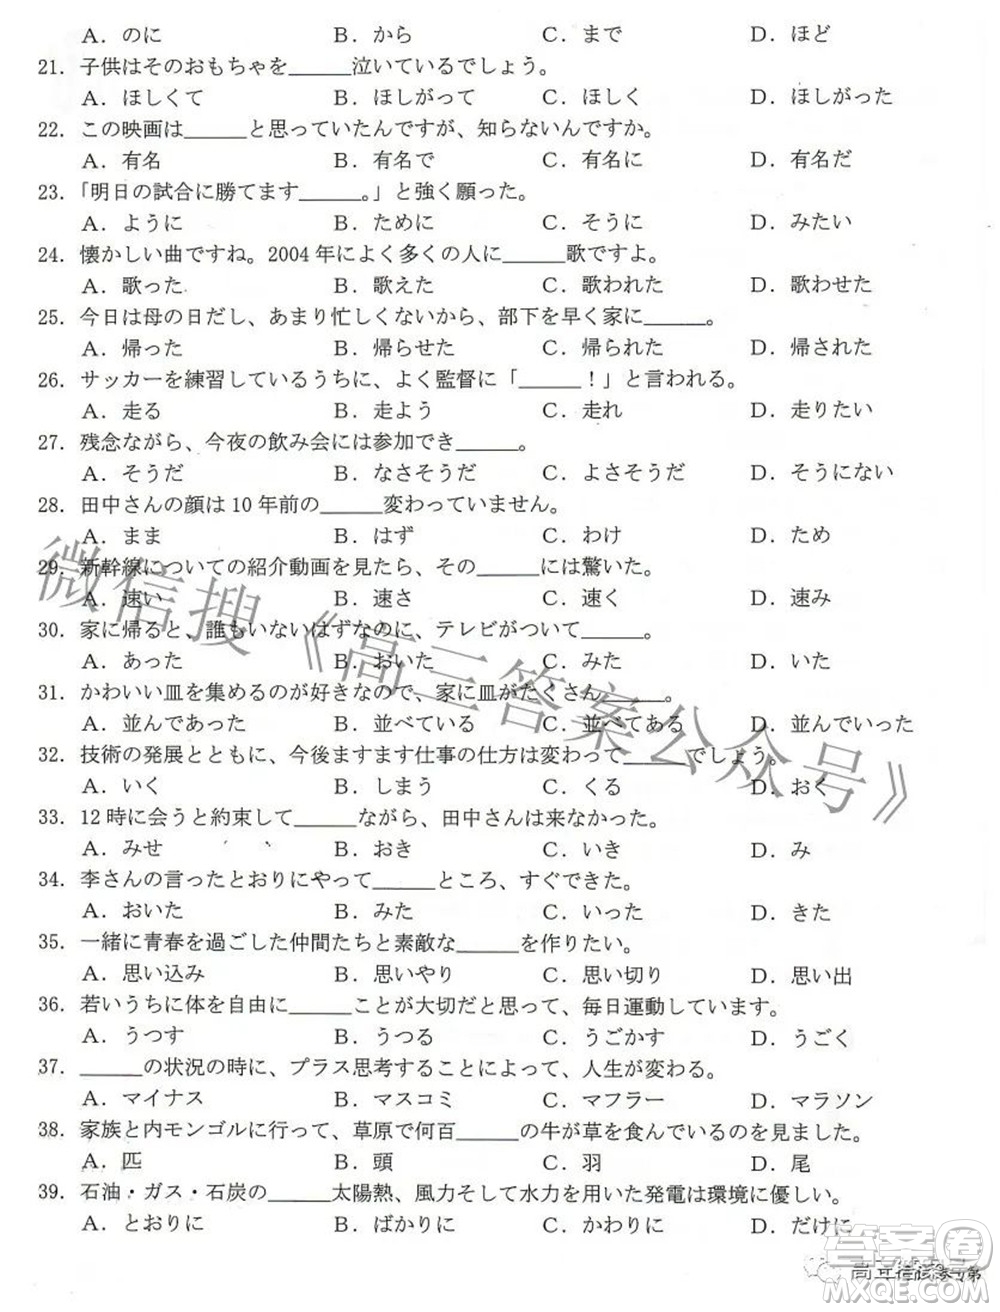 A．のに B．から C．まで D．ほど
21．子供はそのおもちゃを______泣いているでしょう。
A．ほしくて B．ほしがって C．ほしく D．ほしがった
22．この映画は______と思っていたんですが、知らないんですか。
A．有名 B．有名で C．有名に D．有名だ
23．「明日の試合に勝てます______。」と強く願った。
A．ように B．ために C．そうに D．みたい
24．懐かしい曲ですね。2004 年によく多くの人に______歌ですよ。
A．歌った B．歌えた C．歌われた D．歌わせた
25．今日は母の日だし、あまり忙しくないから、部下を早く家に______。
A．帰った B．帰らせた C．帰られた D．帰された
26．サッカーを練習しているうちに、よく監督に「______！」と言われる。
A．走る B．走よう C．走れ D．走りたい
27．残念ながら、今夜の飲み会には参加でき______。
A．そうだ B．なさそうだ C．よさそうだ D．そうにない
28．田中さんの顔は 10 年前の______変わっていません。
A．まま B．はず C．わけ D．ため
29．新幹線についての紹介動画を見たら、その______には驚いた。
A．速い B．速さ C．速く D．速み
30．家に帰ると、誰もいないはずなのに、テレビがついて______。
A．あった B．おいた C．みた D．いた
31．かわいい皿を集めるのが好きなので、家に皿がたくさん______。
A．並んであった B．並べている C．並べてある D．並んでいった
32．技術の発展とともに、今後ますます仕事の仕方は変わって______でしょう。
A．いく B．しまう C．くる D．おく
33．12 時に会うと約束して______ながら、田中さんは来なかった。
A．みせ B．おき C．いき D．み
34．李さんの言ったとおりにやって______ところ、すぐできた。
A．おいた B．みた C．いった D．きた
35．一緒に青春を過ごした仲間たちと素敵な______を作りたい。
A．思い込み B．思いやり C．思い切り D．思い出
36．若いうちに体を自由に______ことが大切だと思って、毎日運動しています。
A．うつす B．うつる C．うごかす D．うごく
37．______の状況の時に、プラス思考することによって、人生が変わる。
A．マイナス B．マスコミ C．マフラー D．マラソン
38．家族と内モンゴルに行って、草原で何百______の牛が草を食んでいるのを見ました。
A．匹 B．頭 C．羽 D．尾
39．石油・ガス・石炭の______太陽熱、風力そして水力を用いた発電は環境に優しい。
A．とおりに B．ばかりに C．かわりに D．だけに
微信搜《高三答案公众号》
答案卷